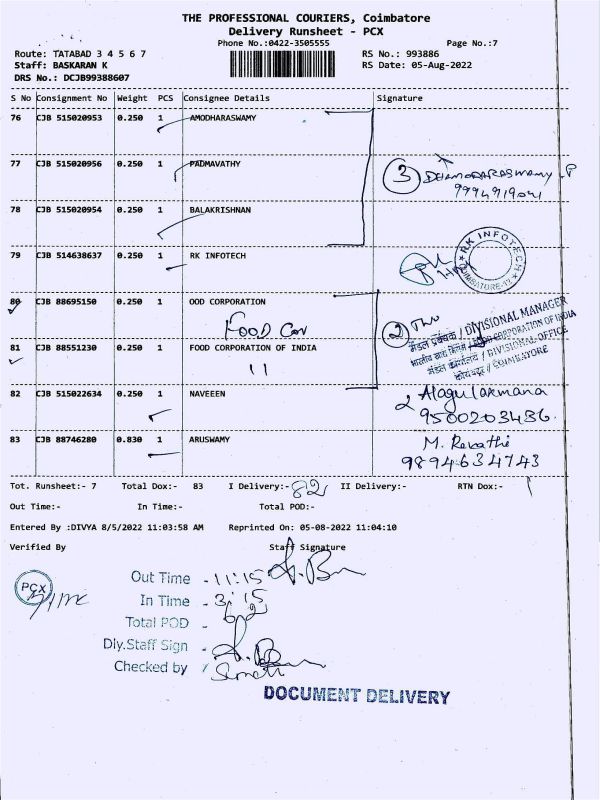 THE PROFESSIONAL COURIERS, Coimbatore
Delivery Runsheet - PCX
Phone No.:0422-3505555 Page No.:7
Route: TATABAD 3 4 5 6 7 RS No.: 993886
Staff: BASKARAN K RS Date: 05-Aug-2022
DRS No.: DCJB99388607
S No Consignment No Weight PCS Consignee Details Signature
76 CJB 515020953 0.250 1 AMODHARASWAMY
77 CJB 515020956 0.250 1 PADMAVATHY
3 DHAMODARASWAMY.P
9994919041
78 CJB 515020954 0.250 1 BALAKRISHNAN
79 CJB 514638637 0.250 1 RK INFOTECH
RK INFOTECH
COIMBATORE-12
80 CJB 88695150 0.250 1 OOD CORPORATION
FOOD Cor
2
मंडल प्रबंधक / DIVISIONAL MANAGER
भारतीय खाद्य निगम / FOOD CORPORATION OF INDIA
मंडल कार्यालय / DIVISIONAL OFFICE
कोयंबटूर / COIMBATORE
81 CJB 88551230 0.250 1 FOOD CORPORATION OF INDIA
11
82 CJB 515022634 0.250 1 NAVEEEN
2 Alagulaxmana
9500203486.
83 CJB 88746280 0.830 1 ARUSWAMY
M. Revathi
9894634743
Tot. Runsheet:- 7 Total Dox:- 83 I Delivery:- 82 II Delivery:- RTN Dox:- 1
Out Time:- In Time:- Total POD:-
Entered By :DIVYA 8/5/2022 11:03:58 AM Reprinted On: 05-08-2022 11:04:10
Verified By Staff Signature
PCX
Out Time - 11:15
In Time - 3:15
Total POD - 62
Dly.Staff Sign -
Checked by
DOCUMENT DELIVERY